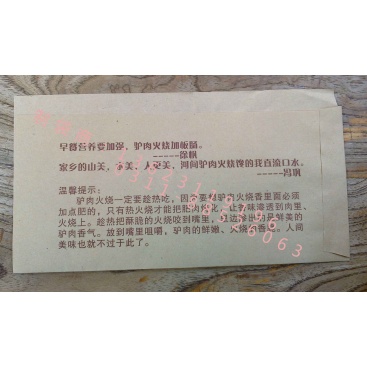 早餐营养要加强，驴肉火烧加板肠。
-----徐帆
家乡的山美，水美，人更美，河间驴肉火烧馋的我直流口水。
-----冯巩
温馨提示：
驴肉火烧一定要趁热吃，因为要使驴肉火烧香里面必须
加点肥的，只有热火烧才能把肥肉烧化，让香味渗透到肉里、
火烧上。趁热把酥脆的火烧咬到嘴里，铁边渗出的是鲜美的
驴肉香气。放到嘴里咀嚼，驴肉的鲜嫩、火烧的香酥。人间
美味也就不过于此了。